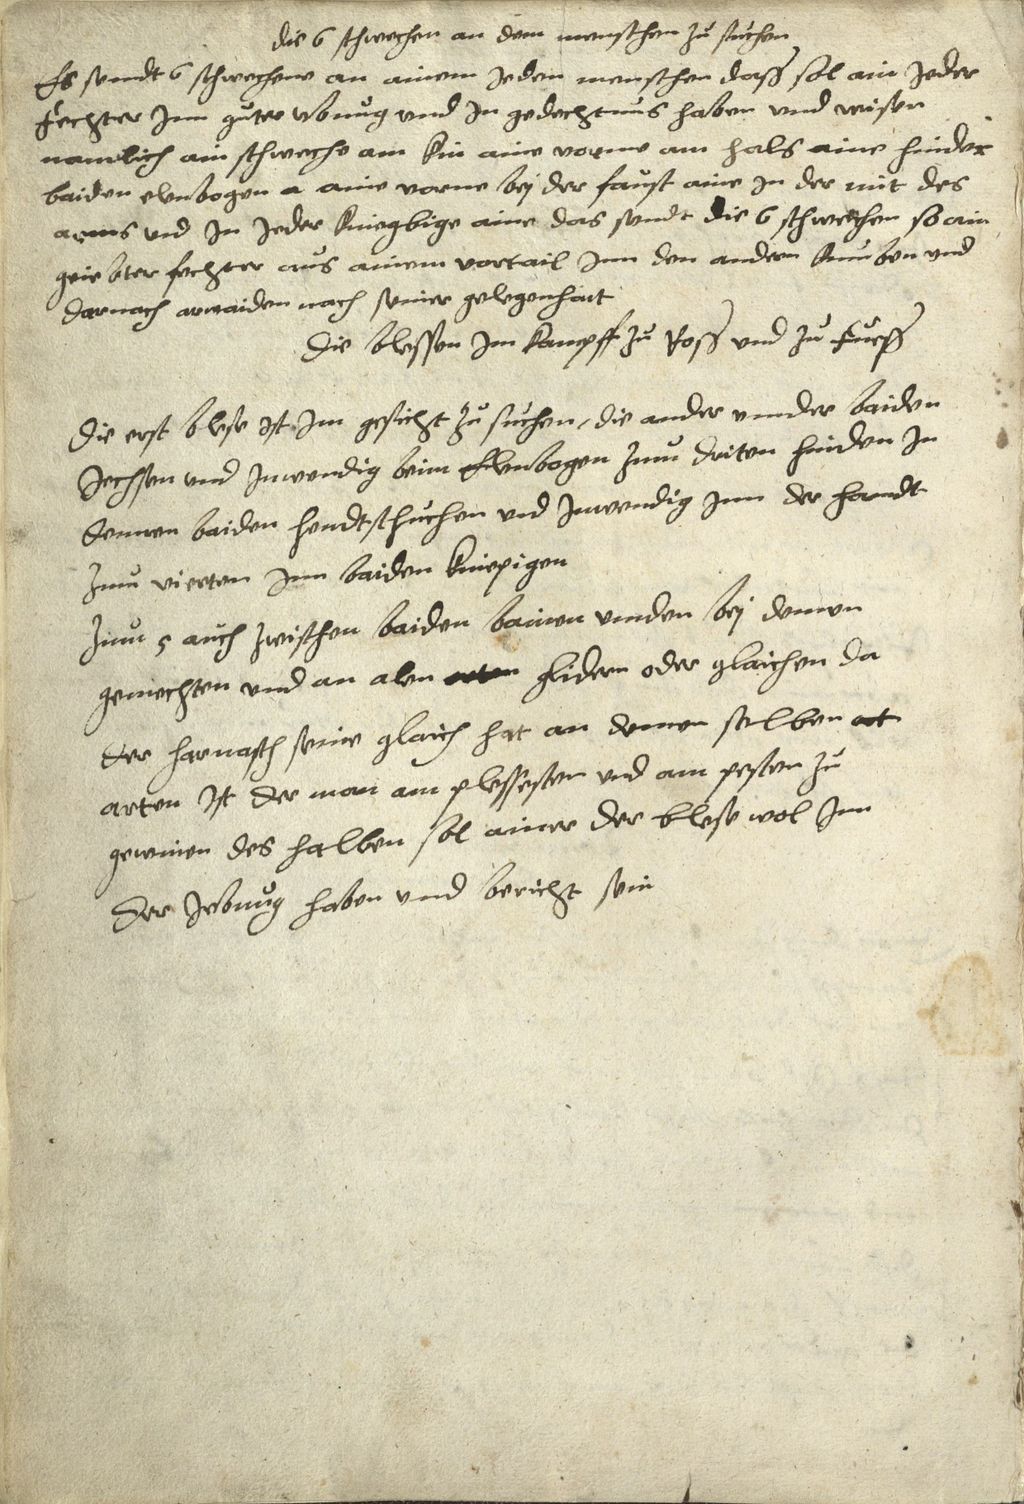 die 6 schwechen an dem menschen zů sůchen
Es sendt 6 schwechene an ainem jeden menschen dass sol ain jeder
fechter jnn gůter vbnůg vnd jn gedechtnus haben vnd wisen
namlich ain schweche am kin aine vorne am hals aine hinder
baiden elenbogen a aine vorne bej der faust aine jn der mit des
arms vnd jn jeder kniegbige aine das sendt die 6 schwechen so ain
geiebter fechter aus ainem vortail jnn den andern
darnach arwaiden nach seiner gelegenhait
Die blessen jm kampff zů Ross vnd zů fuess
Die erst blese jst jm gesicht zů sůchen, die ander vnnder baiden
Jechsen vnd jnwendig beim Elenbogen zum driten hinden jn
dennen baiden hendtschůchen vnd jnwendig jnn der handt
zum vierten jnn baiden kniepigen
zum 5 auch zwischen baiden bainen vnnden bej denen
gemechten vnd an alen glidern oder glaichen da
der harnasch seine glaich hat an denen selben
arten jst der man am plessesten vnd am pesten zů
gewinen des halben sol ainer der blese wol jnn
der jebnůg haben vnd bericht sein